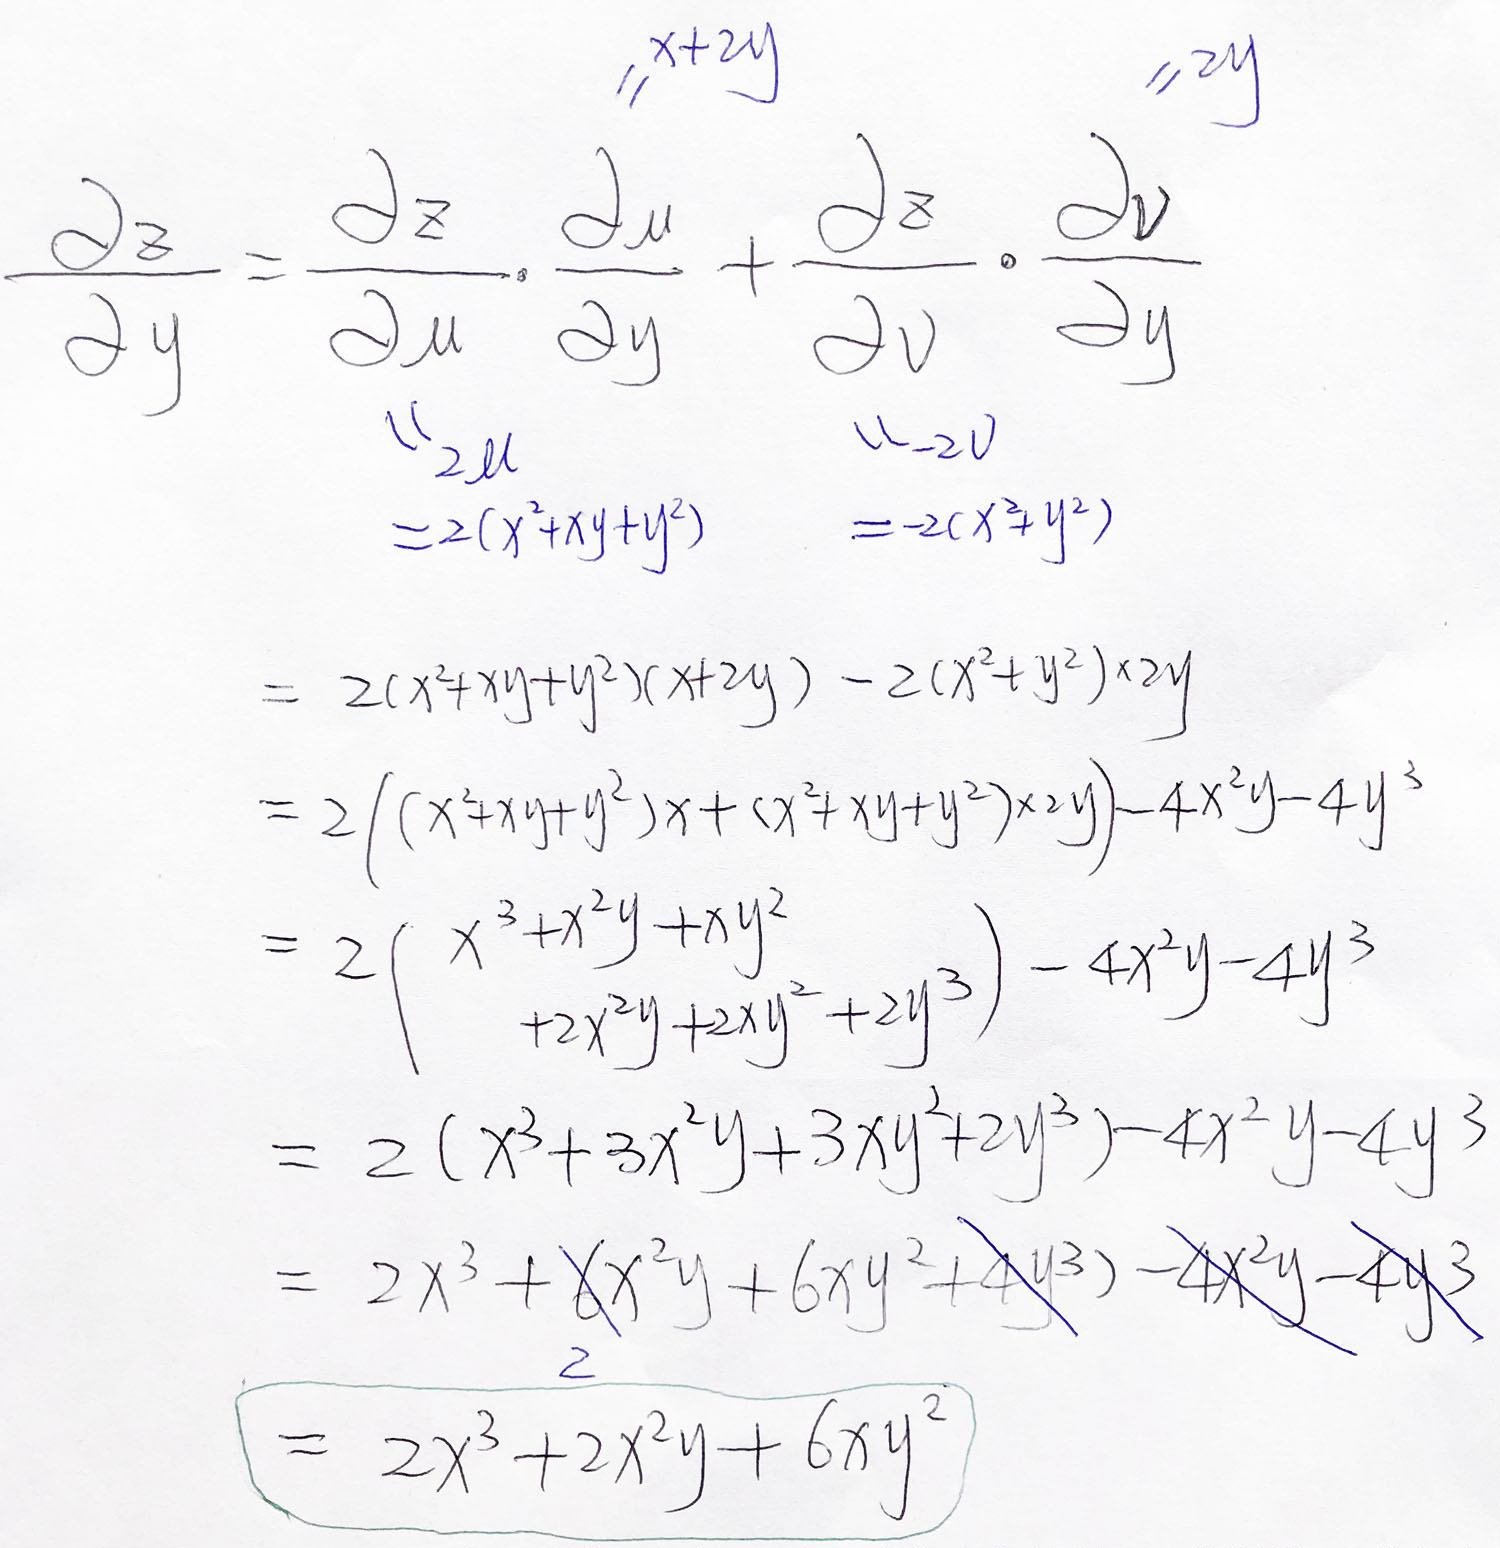 = x+2y = 2y
∂z/∂y = ∂z/∂u · ∂u/∂y + ∂z/∂v · ∂v/∂y
= 2u = -2v
= 2(x²+xy+y²) = -2(x²+y²)
= 2(x²+xy+y²)(x+2y) - 2(x²+y²)×2y
= 2((x²+xy+y²)x+(x²+xy+y²)×2y) - 4x²y - 4y³
= 2(x³+x²y+xy²
+2x²y+2xy²+2y³) - 4x²y - 4y³
= 2(x³+3x²y+3xy²+2y³) - 4x²y - 4y³
= 2x³+6x²y+6xy²+4y³) - 4x²y - 4y³
2
= 2x³+2x²y+6xy²